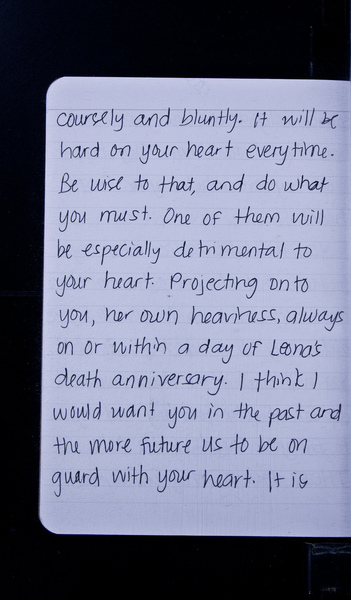 coursely and bluntly. It will be
hard on your heart everytime.
Be wise to that, and do what
you must. One of them will
be especially detrimental to
your heart. Projecting onto
you, her own heaviness, always
on or within a day of Leona's
death anniversary. I think I
would want you in the past and
the more future us to be on
guard with your heart. It is